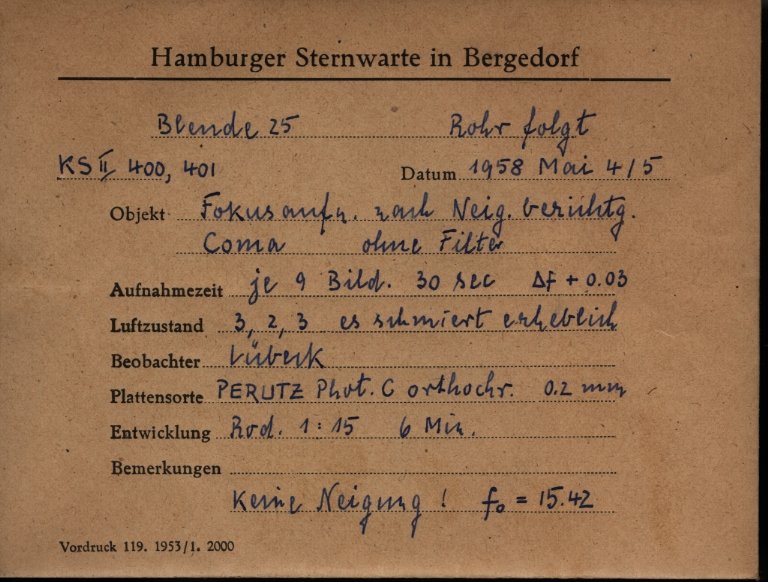 Hamburger Sternwarte in Bergedorf
Blende 25 Rohr folgt
KS II 400, 401 Datum 1958 Mai 4/5
Objekt Fokusaufn. nach Neig. berichtg.
Coma ohne Filter
Aufnahmezeit je 9 Bild. 30 sec Δf + 0.03
Luftzustand 3, 2, 3 es schmiert erheblich
Beobachter Lübeck
Plattensorte PERUTZ Phot. C orthochr. 0.2 mm
Entwicklung Rod. 1:15 6 Min.
Bemerkungen
Keine Neigung! f₀ = 15.42
Vordruck 119. 1953/1. 2000